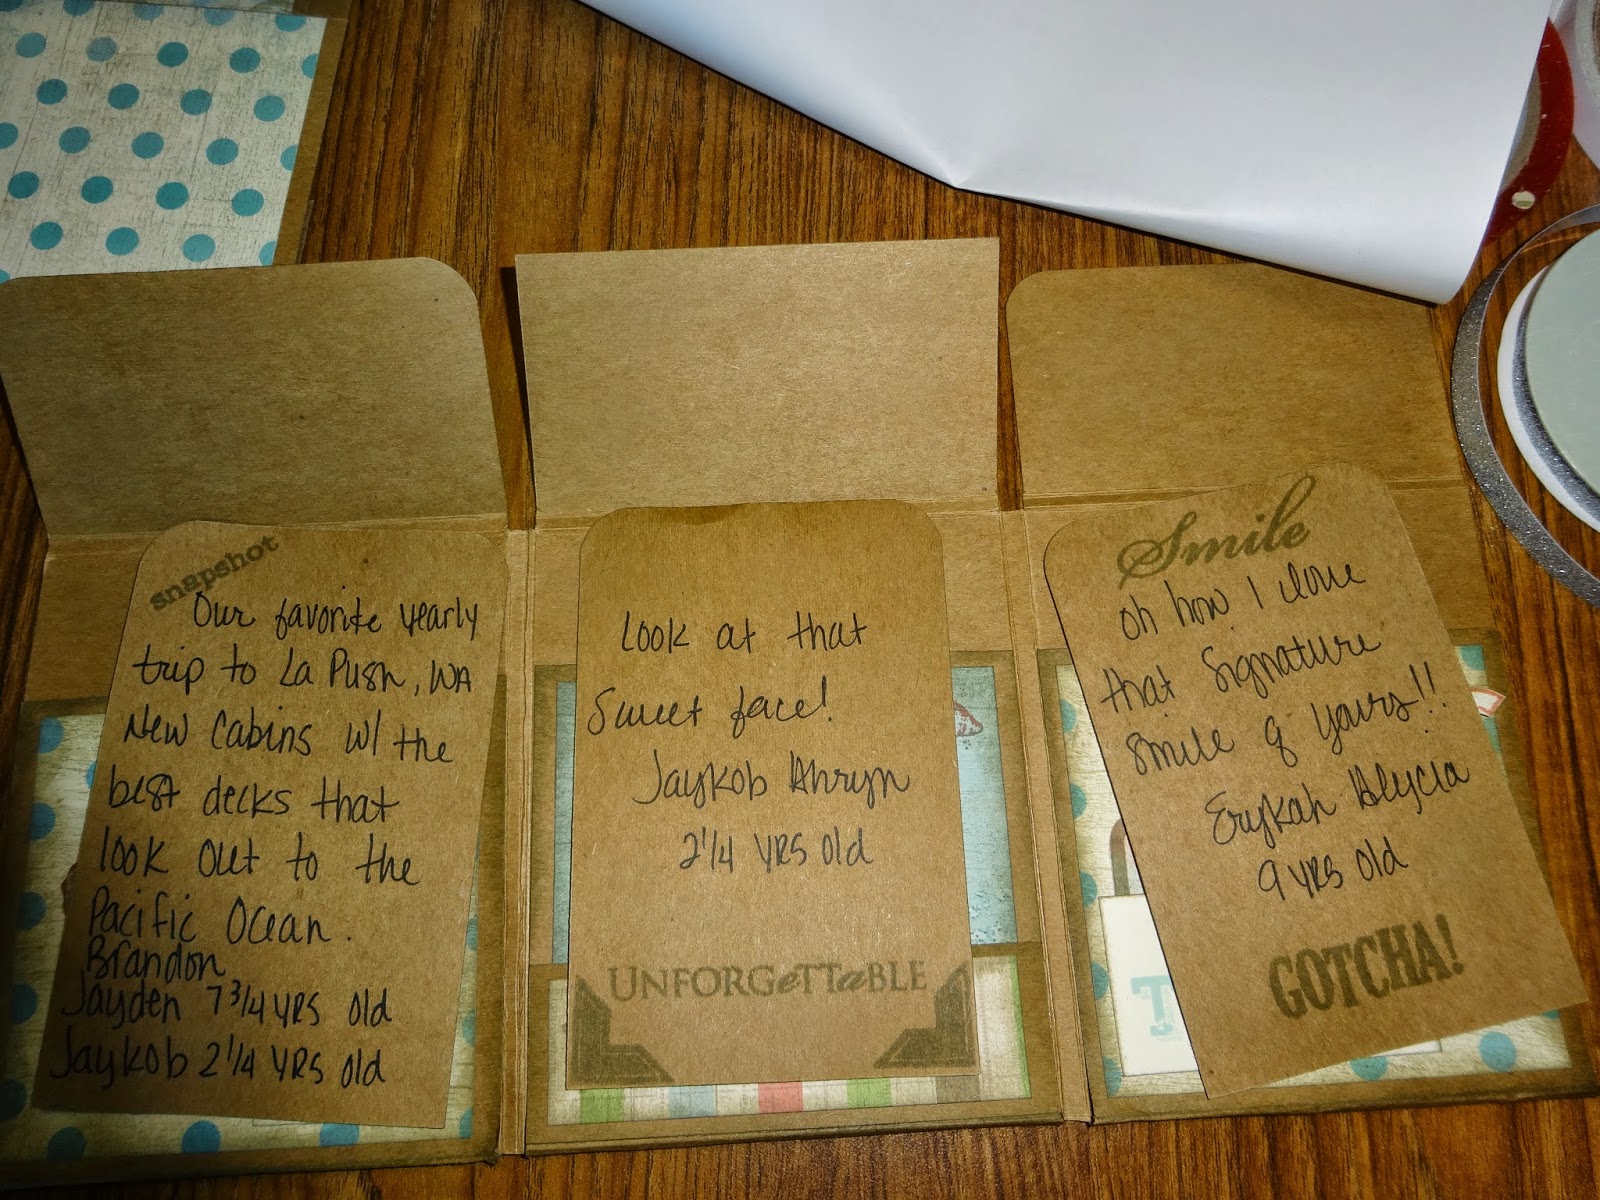 snapshot
Our favorite yearly
trip to La Push, WA
New Cabins w/ the
best decks that
look out to the
Pacific Ocean.
Brandon
Jayden 7 3/4 yrs old
Jaykob 2 1/4 yrs old
Look at that
Sweet face!
Jaykob Ahryn
2 1/4 yrs old
UNFORGeTTaBLE
Smile
oh how I love
that Signature
smile of yours!!
Erykah Alycia
9 yrs old
GOTCHA!
T